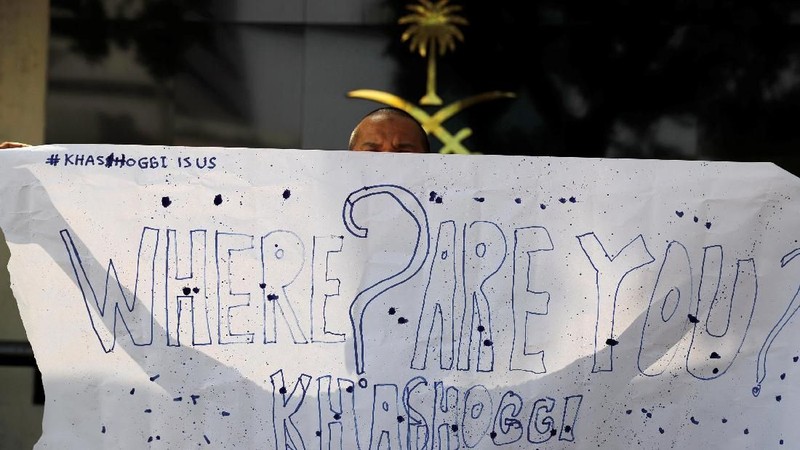 #KHASHOGGI IS US
WHERE? ARE YOU?
KHASHOGGI